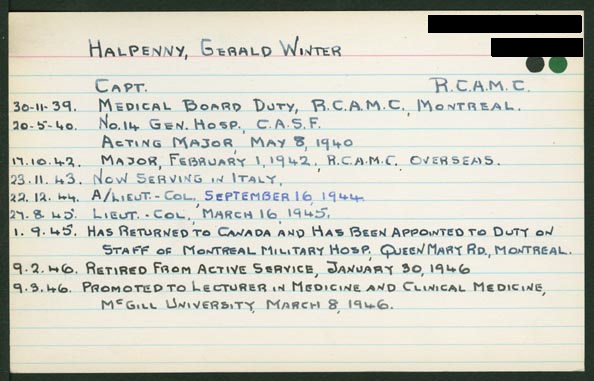 HALPENNY, GERALD WINTER
CAPT. R.C.A.M.C.
30-11-39. MEDICAL BOARD DUTY, R.C.A.M.C., MONTREAL.
20-5-40. NO.14 GEN. HOSP., C.A.S.F.
ACTING MAJOR, MAY 8, 1940
17.10.42. MAJOR, FEBRUARY 1, 1942, R.C.A.M.C. OVERSEAS.
23.11.43. NOW SERVING IN ITALY.
22.12.44. A/LIEUT-COL., SEPTEMBER 16, 1944.
27.8.45. LIEUT.-COL., MARCH 16, 1945.
1.9.45. HAS RETURNED TO CANADA AND HAS BEEN APPOINTED TO DUTY ON
STAFF OF MONTREAL MILITARY HOSP., QUEEN MARY RD., MONTREAL.
9.2.46. RETIRED FROM ACTIVE SERVICE, JANUARY 30, 1946
9.3.46. PROMOTED TO LECTURER IN MEDICINE AND CLINICAL MEDICINE,
MCGILL UNIVERSITY, MARCH 8, 1946.